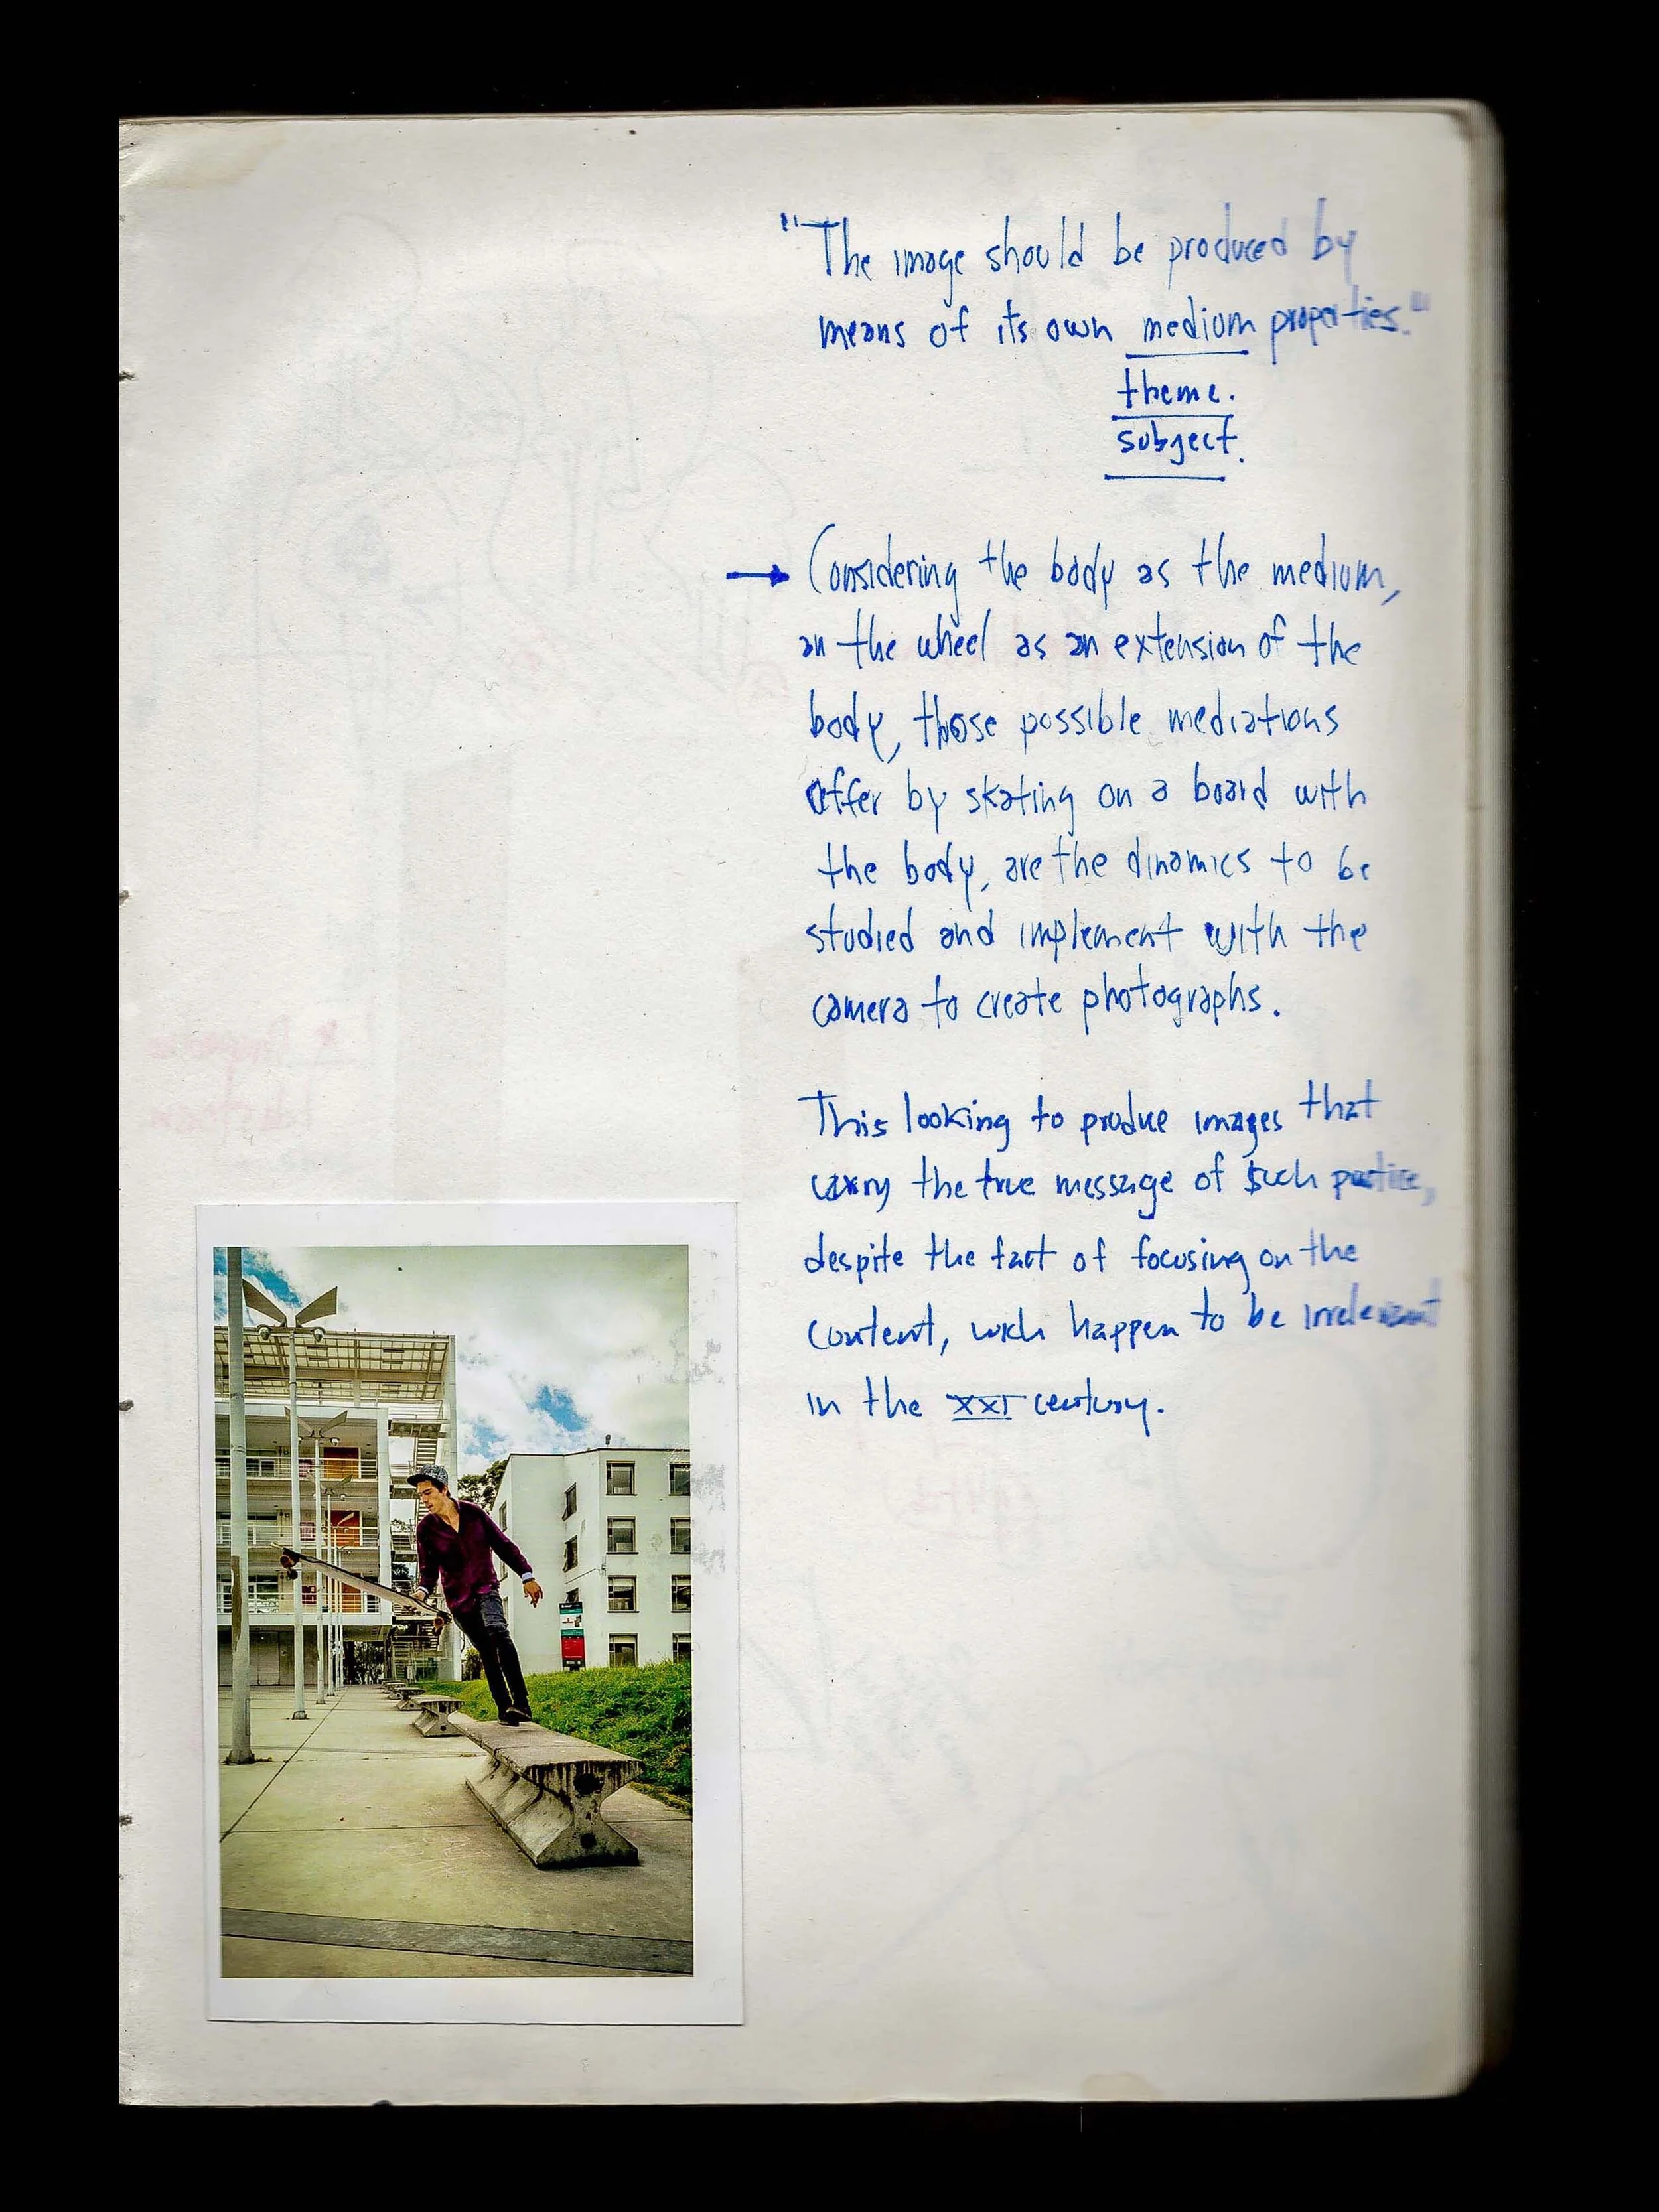 "The image should be produced by
means of its own medium properties."
theme.
subject.
→ Considering the body as the medium,
an the wheel as an extension of the
body, those possible mediations
offer by skating on a board with
the body, are the dinamics to be
studied and implement with the
camera to create photographs.
This looking to produe images that
carry the true message of such practice,
despite the fact of focusing on the
content, wich happen to be irrelevant
in the XXI century.